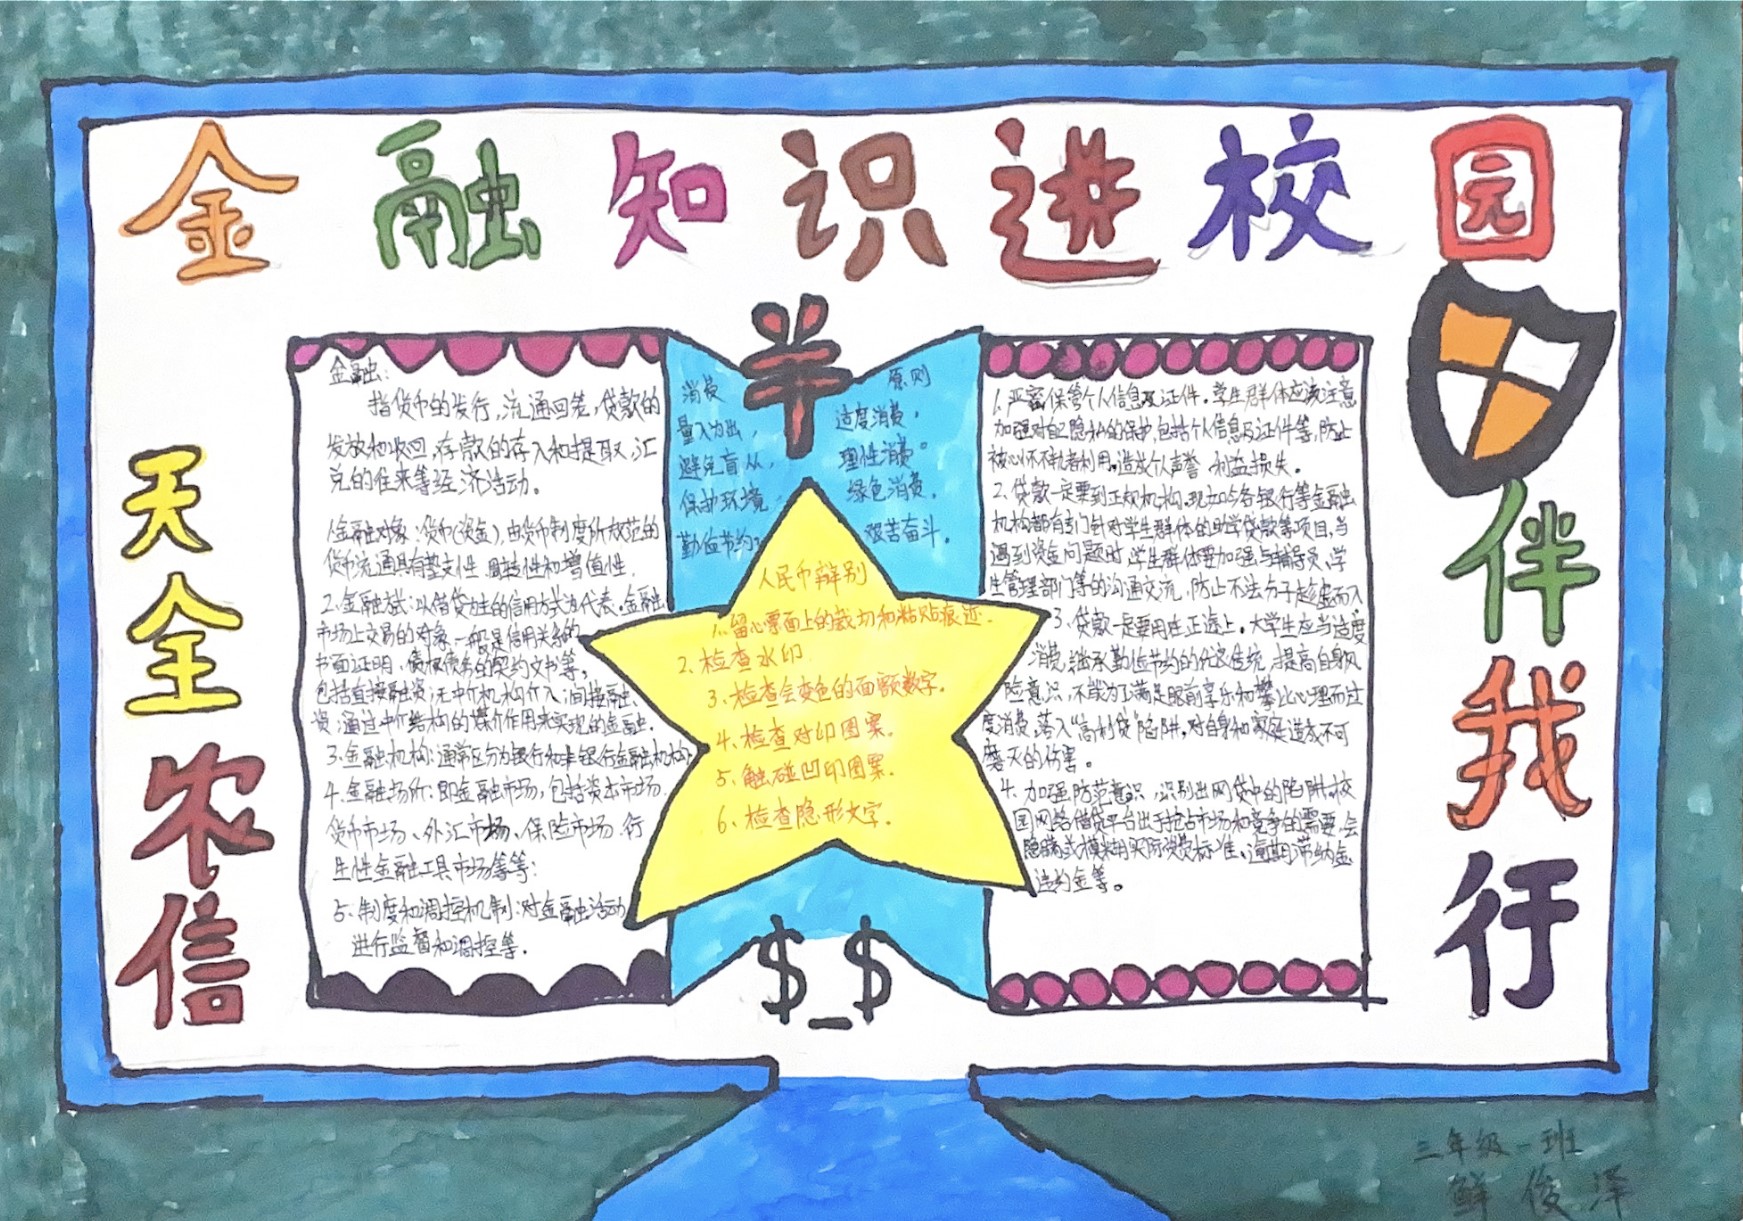 金融知识进校园
天全农信
伴我行
金融:
指货币的发行,流通回笼,贷款的
发放和收回,存款的存入和提取,汇
兑的往来等经济活动。
1金融对象:货币(资金),由货币制度所规范的
货币流通具有垫支性、周转性和增值性。
2.金融方式:以借贷为主的信用方式为代表,金融
市场上交易的对象,一般是信用关系的
书面证明,债权债务的契约文书等,
包括直接融资:无中介机构介入;间接融
资:通过中介结构的媒介作用来实现的金融。
3.金融机构:通常区分为银行和非银行金融机构
4.金融场所:即金融市场,包括资本市场.
货币市场、外汇市场、保险市场、衍
生性金融工具市场等等;
5、制度和调控机制:对金融活动
进行监督和调控等。
消费
量入为出,
避免盲从,
保护环境
勤俭节约
原则
适度消费,
理性消费。
绿色消费,
艰苦奋斗。
人民币辩别
1.留心票面上的裁切和粘贴痕迹.
2.检查水印
3.检查会变色的面额数字.
4.检查对印图案.
5.触碰凹印图案.
6、检查隐形文字.
1.严密保管个人信息及证件。学生群体应该注意
加强对自己隐私的保护,包括个人信息及证件等,防止
被心怀不轨者利用。造成个人声誉、利益损失。
2.贷款一定要到正规机构。现如今各银行等金融
机构都有专门针对学生群体的助学贷款等项目,当
遇到资金问题时,学生群体要加强与辅导员、学
生管理部门等的沟通交流,防止不法分子趁虚而入
3.贷款一定要用在正途上。大学生应当适度
消费,继承勤俭节约的优良传统,提高自身风
险意识,不能为了满足眼前享乐和攀比心理而过
度消费,落入“高利贷”陷阱,对自身和家庭造成不可
磨灭的伤害。
4.加强防范意识,识别出网贷中的陷阱,校
园网络借贷平台出于抢占市场和竞争的需要,会
隐瞒或模糊实际资费标准、逾期滞纳金
违约金等。
$_$
三年级一班
鲜俊泽